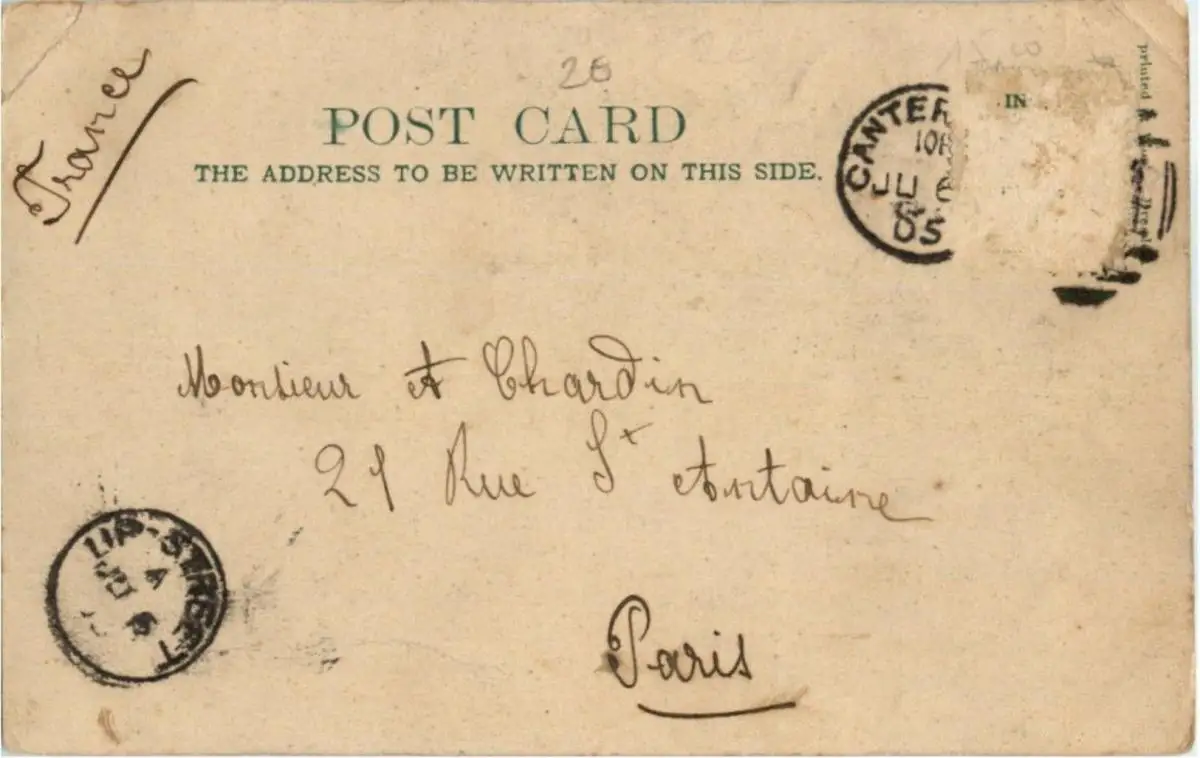 France
28
POST CARD
THE ADDRESS TO BE WRITTEN ON THIS SIDE.
CANTER
JU 6
05
IN
printed
Monsieur A Chardin
21 Rue St Antoine
Paris
STREET